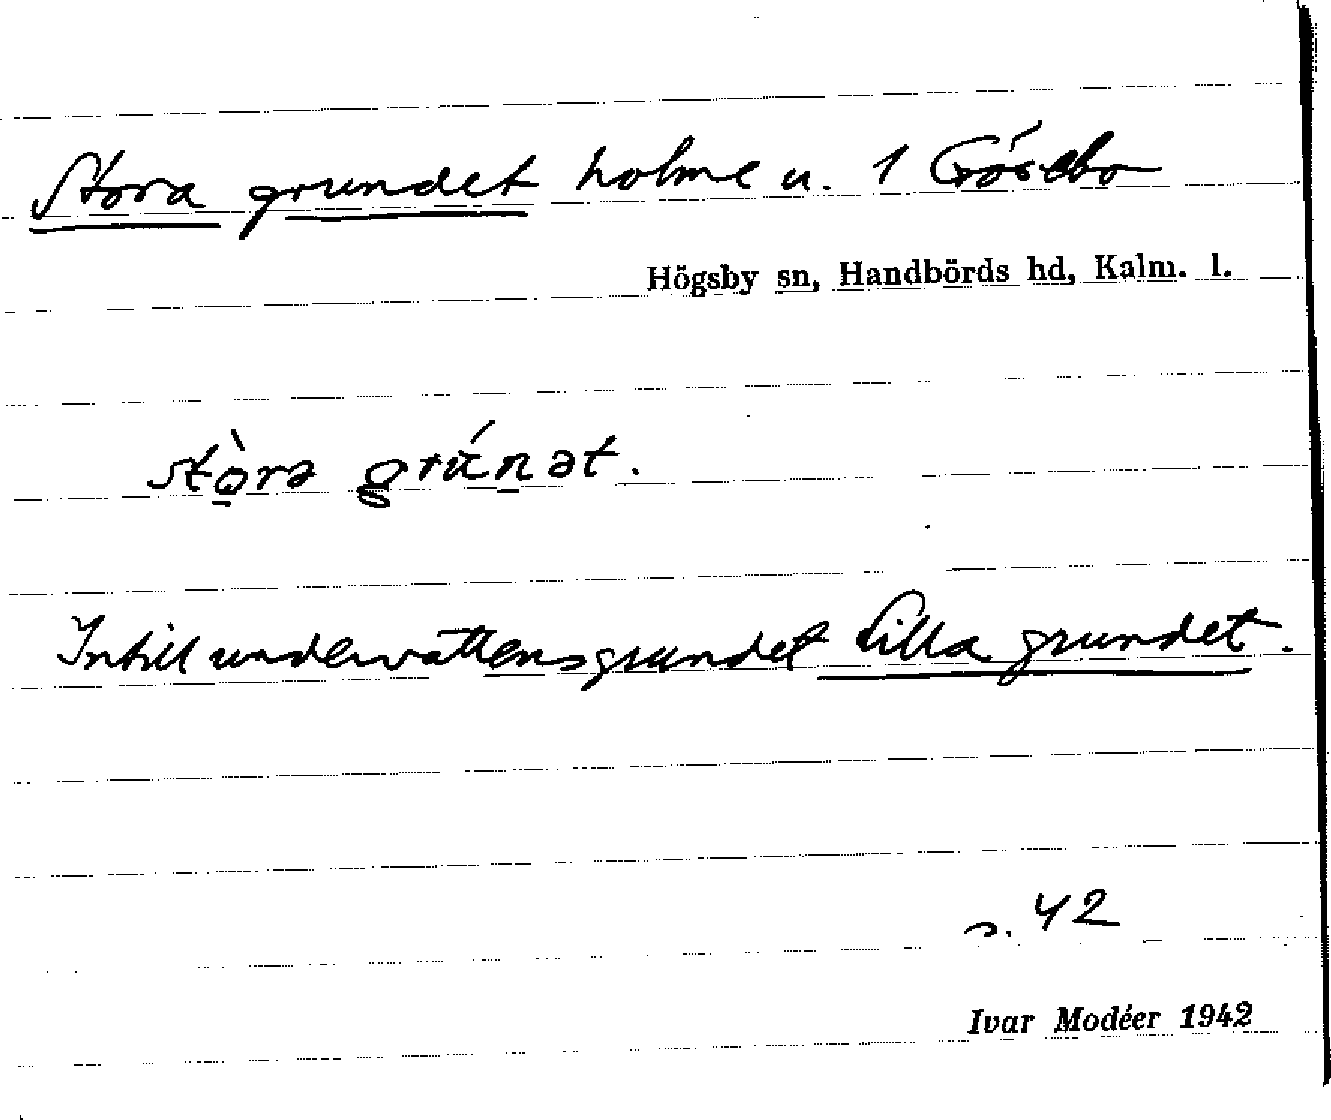 Stora grundet holme u. 1 Gösebo
Högsby sn, Handbörds hd, Kalm. l.
stò̠rə grún̠ət.
Intill undervattensgrundet Lilla grundet.
s. 42
Ivar Modéer 1942